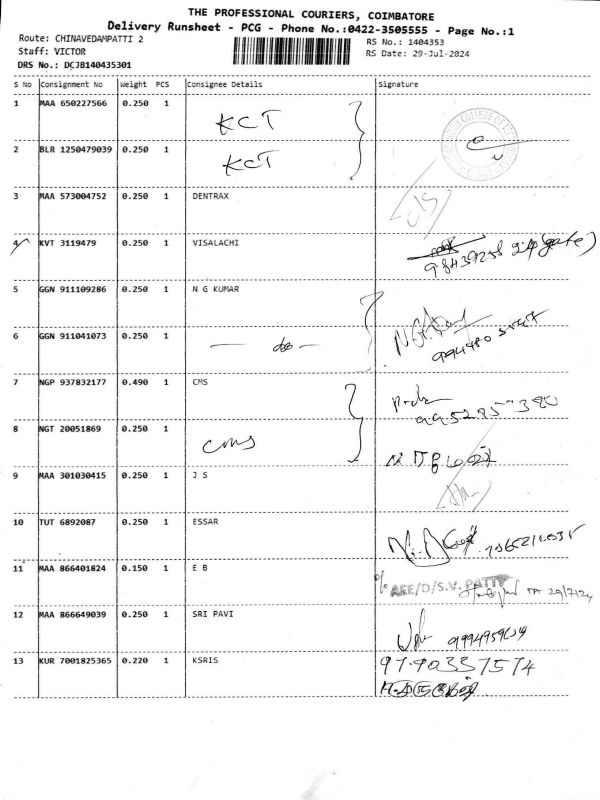 THE PROFESSIONAL COURIERS, COIMBATORE
Delivery Runsheet - PCG - Phone No.:0422-3505555 - Page No.:1
Route: CHINAVEDAMPATTI 2
Staff: VICTOR
DRS No.: DCJB140435301
RS No.: 1404353
RS Date: 29-Jul-2024
S No Consignment No Weight PCS Consignee Details Signature
1 MAA 650227566 0.250 1 KCT
2 BLR 1250479039 0.250 1 KCT
3 MAA 573004752 0.250 1 DENTRAX
4 KVT 3119479 0.250 1 VISALACHI
5 GGN 911109286 0.250 1 N G KUMAR
6 GGN 911041073 0.250 1 — do —
7 NGP 937832177 0.490 1 CMS
8 NGT 20051869 0.250 1 cms
9 MAA 301030415 0.250 1 J S
10 TUT 6892087 0.250 1 ESSAR
11 MAA 866401824 0.150 1 E B AEE/D/S.V. PATTY 29/7/24
12 MAA 866649039 0.250 1 SRI PAVI
13 KUR 7001825365 0.220 1 KSRIS 9790337574